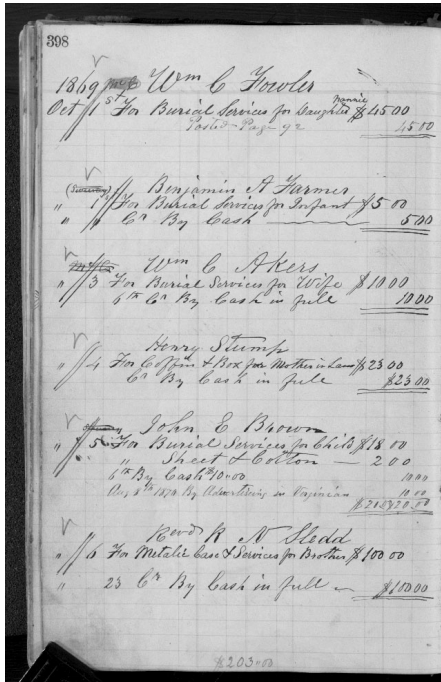 398
1869 Wm C Fowler
Nannie
Oct 1st For Burial Services for Daughter $45 00
Posted Page 92 45 00
Benjamin A Farmer
" 1 For Burial Services for Infant $5 00
" " Cr By Cash 5 00
Wm C Akers
" 3 For Burial Services for Wife $10 00
6th Cr By Cash in full 10 00
Henry Stump
" 4 For Coffin & Box for Mother in Law $23 00
Cr By Cash in full $23 00
John E Brown
" 5 For Burial Services for Child $18 00
" Sheet & Cotton — 2 00
6th By Cash $10 00 10 00
Aug 8th 1870 By Advertising in Virginian 10 00
$20 00
Revd R N Sledd
" 6 For Metalic Case & Services for Brother $100 00
" 23 Cr By Cash in full $100 00
$203 00